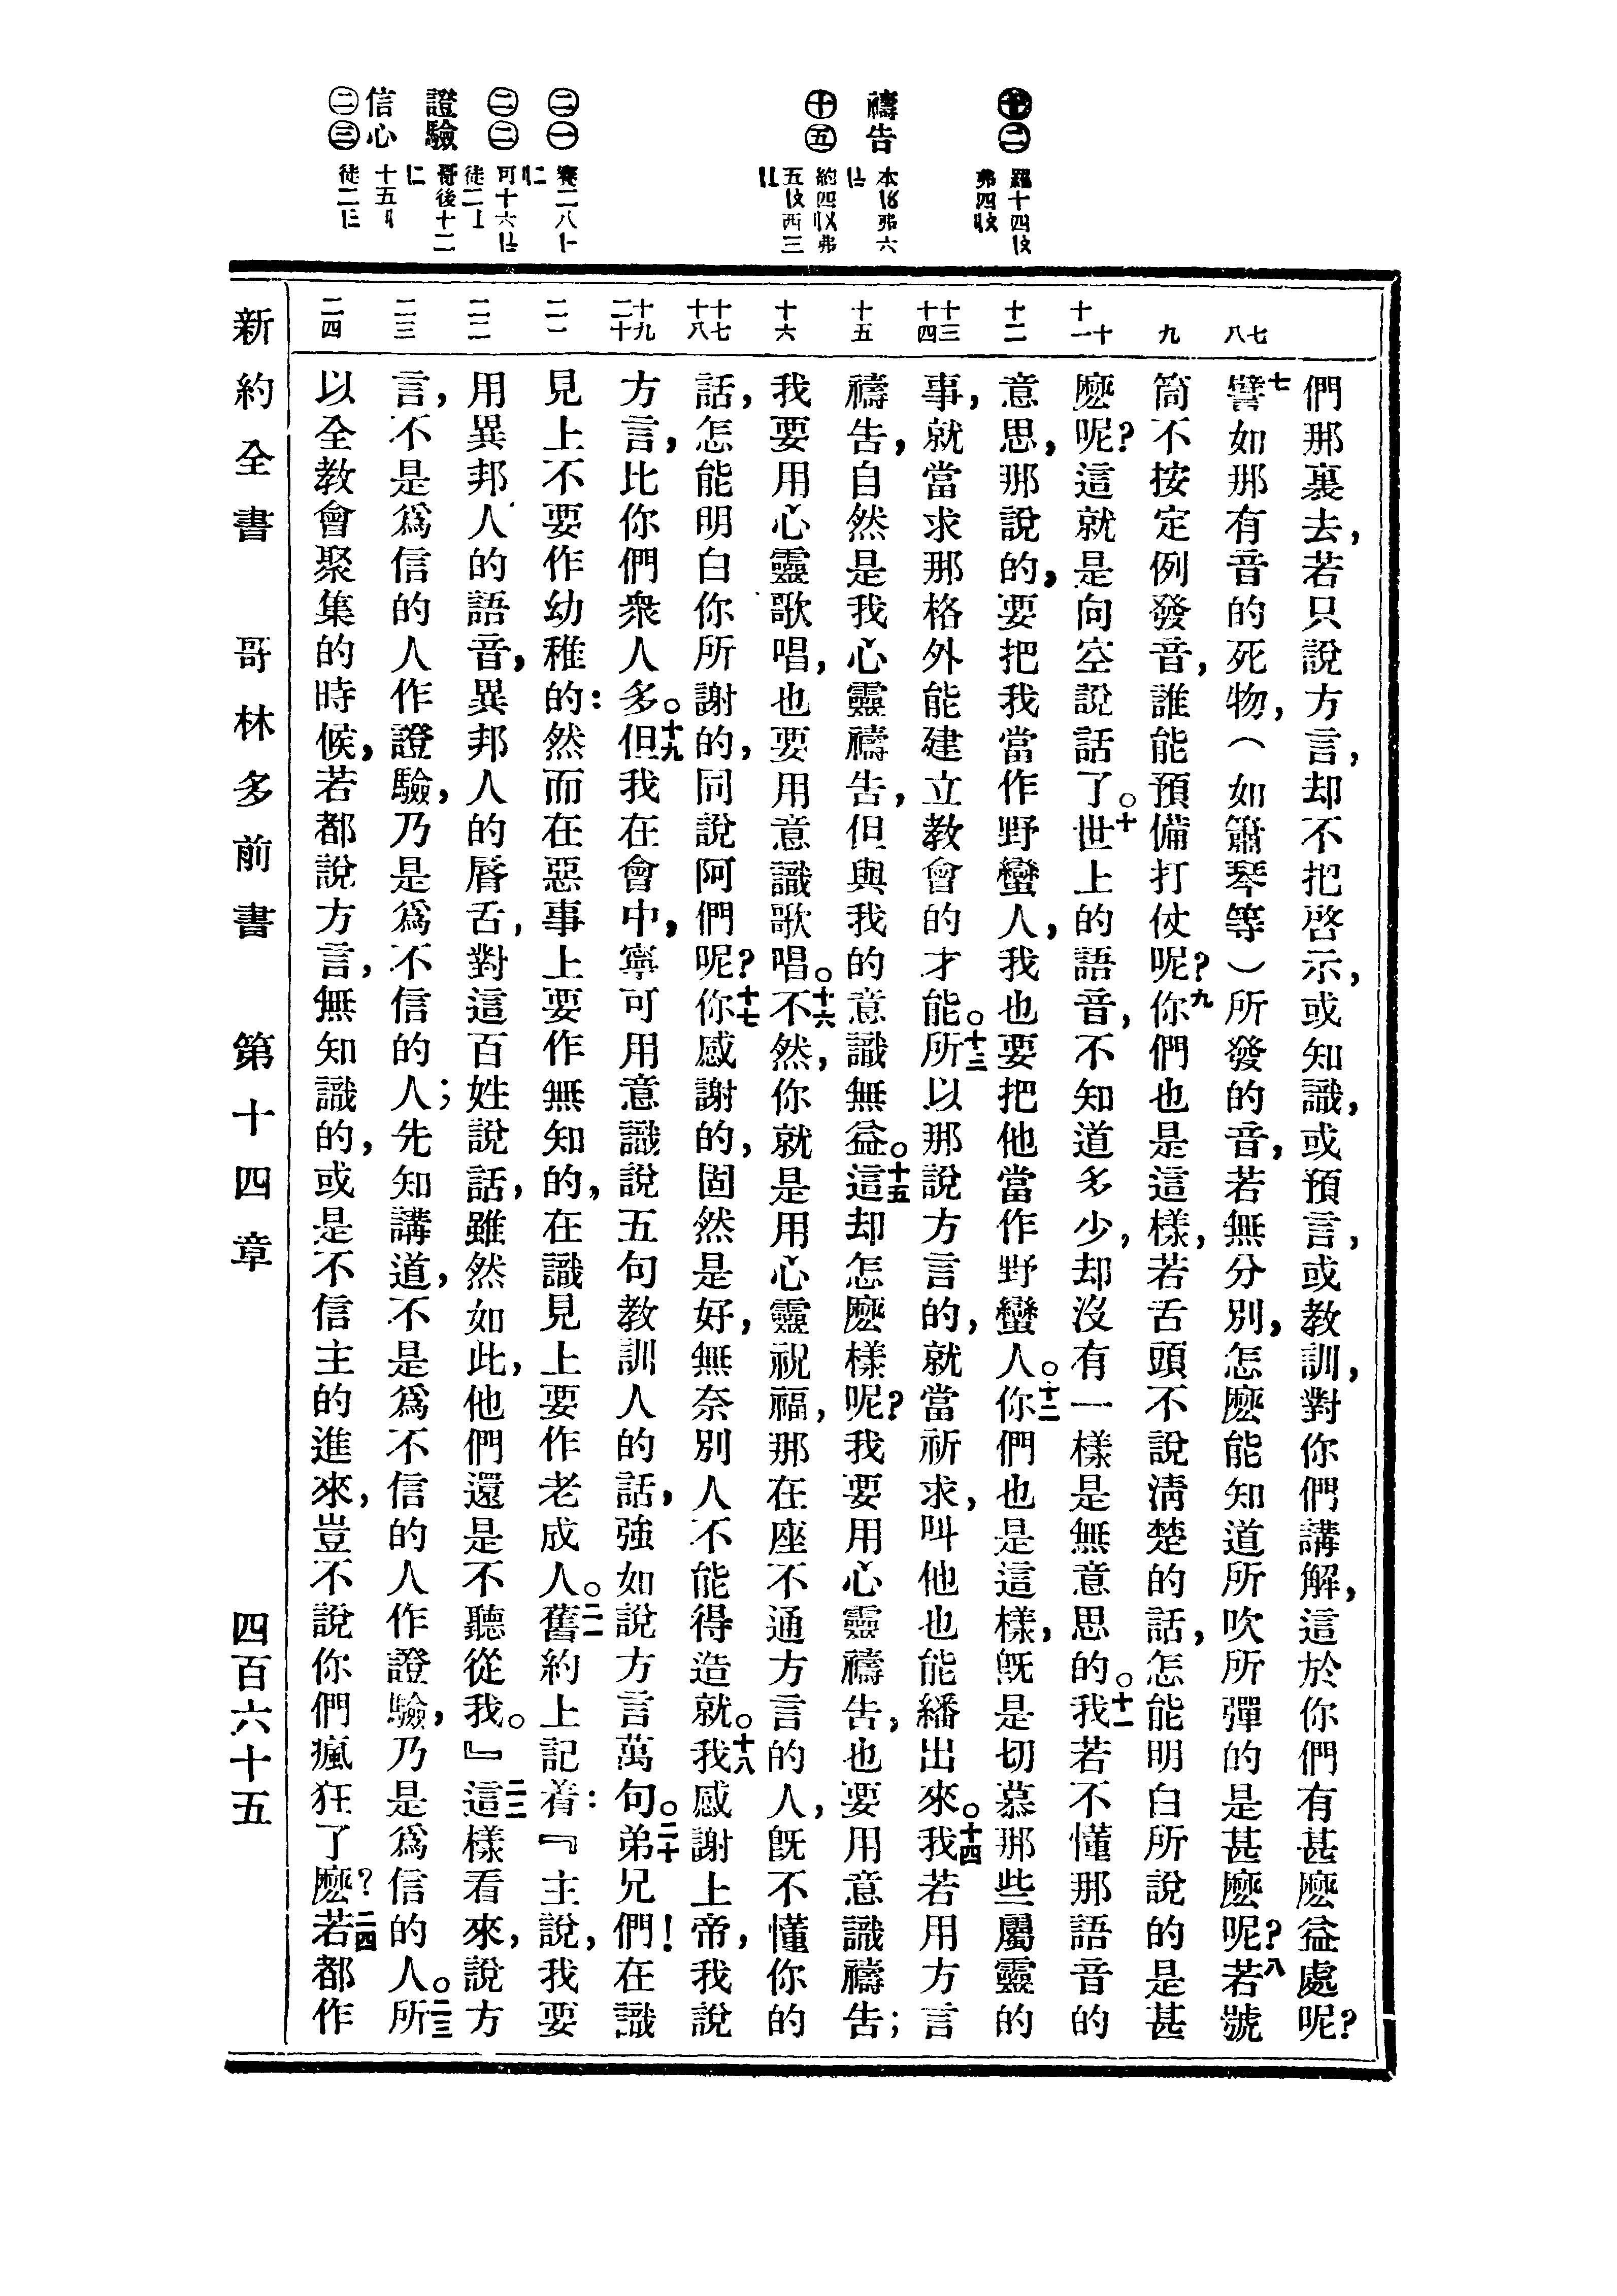 十二 羅十四
弗四
禱告 本 弗六
十五 約四 弗
五 西三
二一 賽二八
二二 可十六
徒二
證驗 哥後十二
信心 十五
二三 徒二
七八
九
十十一
十二
十三十四
十五
十六
十七十八
十九二十
二一
二二
二三
二四
們那裏去，若只說方言，却不把啓示，或知識，或預言，或教訓，對你們講解，這於你們有甚麽益處呢？
七譬如那有音的死物，（如簫琴等）所發的音，若無分別，怎麽能知道所吹所彈的是甚麽呢？八若號
筒不按定例發音，誰能預備打仗呢？九你們也是這樣，若舌頭不說淸楚的話，怎能明白所說的是甚
麽呢？這就是向空說話了。十世上的語音，不知道多少，却沒有一樣是無意思的。十一我若不懂那語音的
意思，那說的，要把我當作野蠻人，我也要把他當作野蠻人。十二你們也是這樣，旣是切慕那些屬靈的
事，就當求那格外能建立教會的才能。十三所以那說方言的，就當祈求，叫他也能繙出來。十四我若用方言
禱告，自然是我心靈禱告，但與我的意識無益。十五這却怎麽樣呢？我要用心靈禱告，也要用意識禱告；
我要用心靈歌唱，也要用意識歌唱。十六不然，你就是用心靈祝福，那在座不通方言的人，旣不懂你的
話，怎能明白你所謝的，同說阿們呢？十七你感謝的，固然是好，無奈別人不能得造就。十八我感謝上帝，我說
方言，比你們衆人多。十九但我在會中，寧可用意識說五句教訓人的話，強如說方言萬句。二十弟兄們！在識
見上不要作幼稚的：然而在惡事上要作無知的，在識見上要作老成人。二一舊約上記着：『主說，我要
用異邦人的語音，異邦人的脣舌，對這百姓說話，雖然如此，他們還是不聽從我。』二二這樣看來，說方
言，不是爲信的人作證驗，乃是爲不信的人；先知講道，不是爲不信的人作證驗，乃是爲信的人。二三所
以全教會聚集的時候，若都說方言，無知識的，或是不信主的進來，豈不說你們瘋狂了麽？二四若都作
新約全書 哥林多前書 第十四章 四百六十五